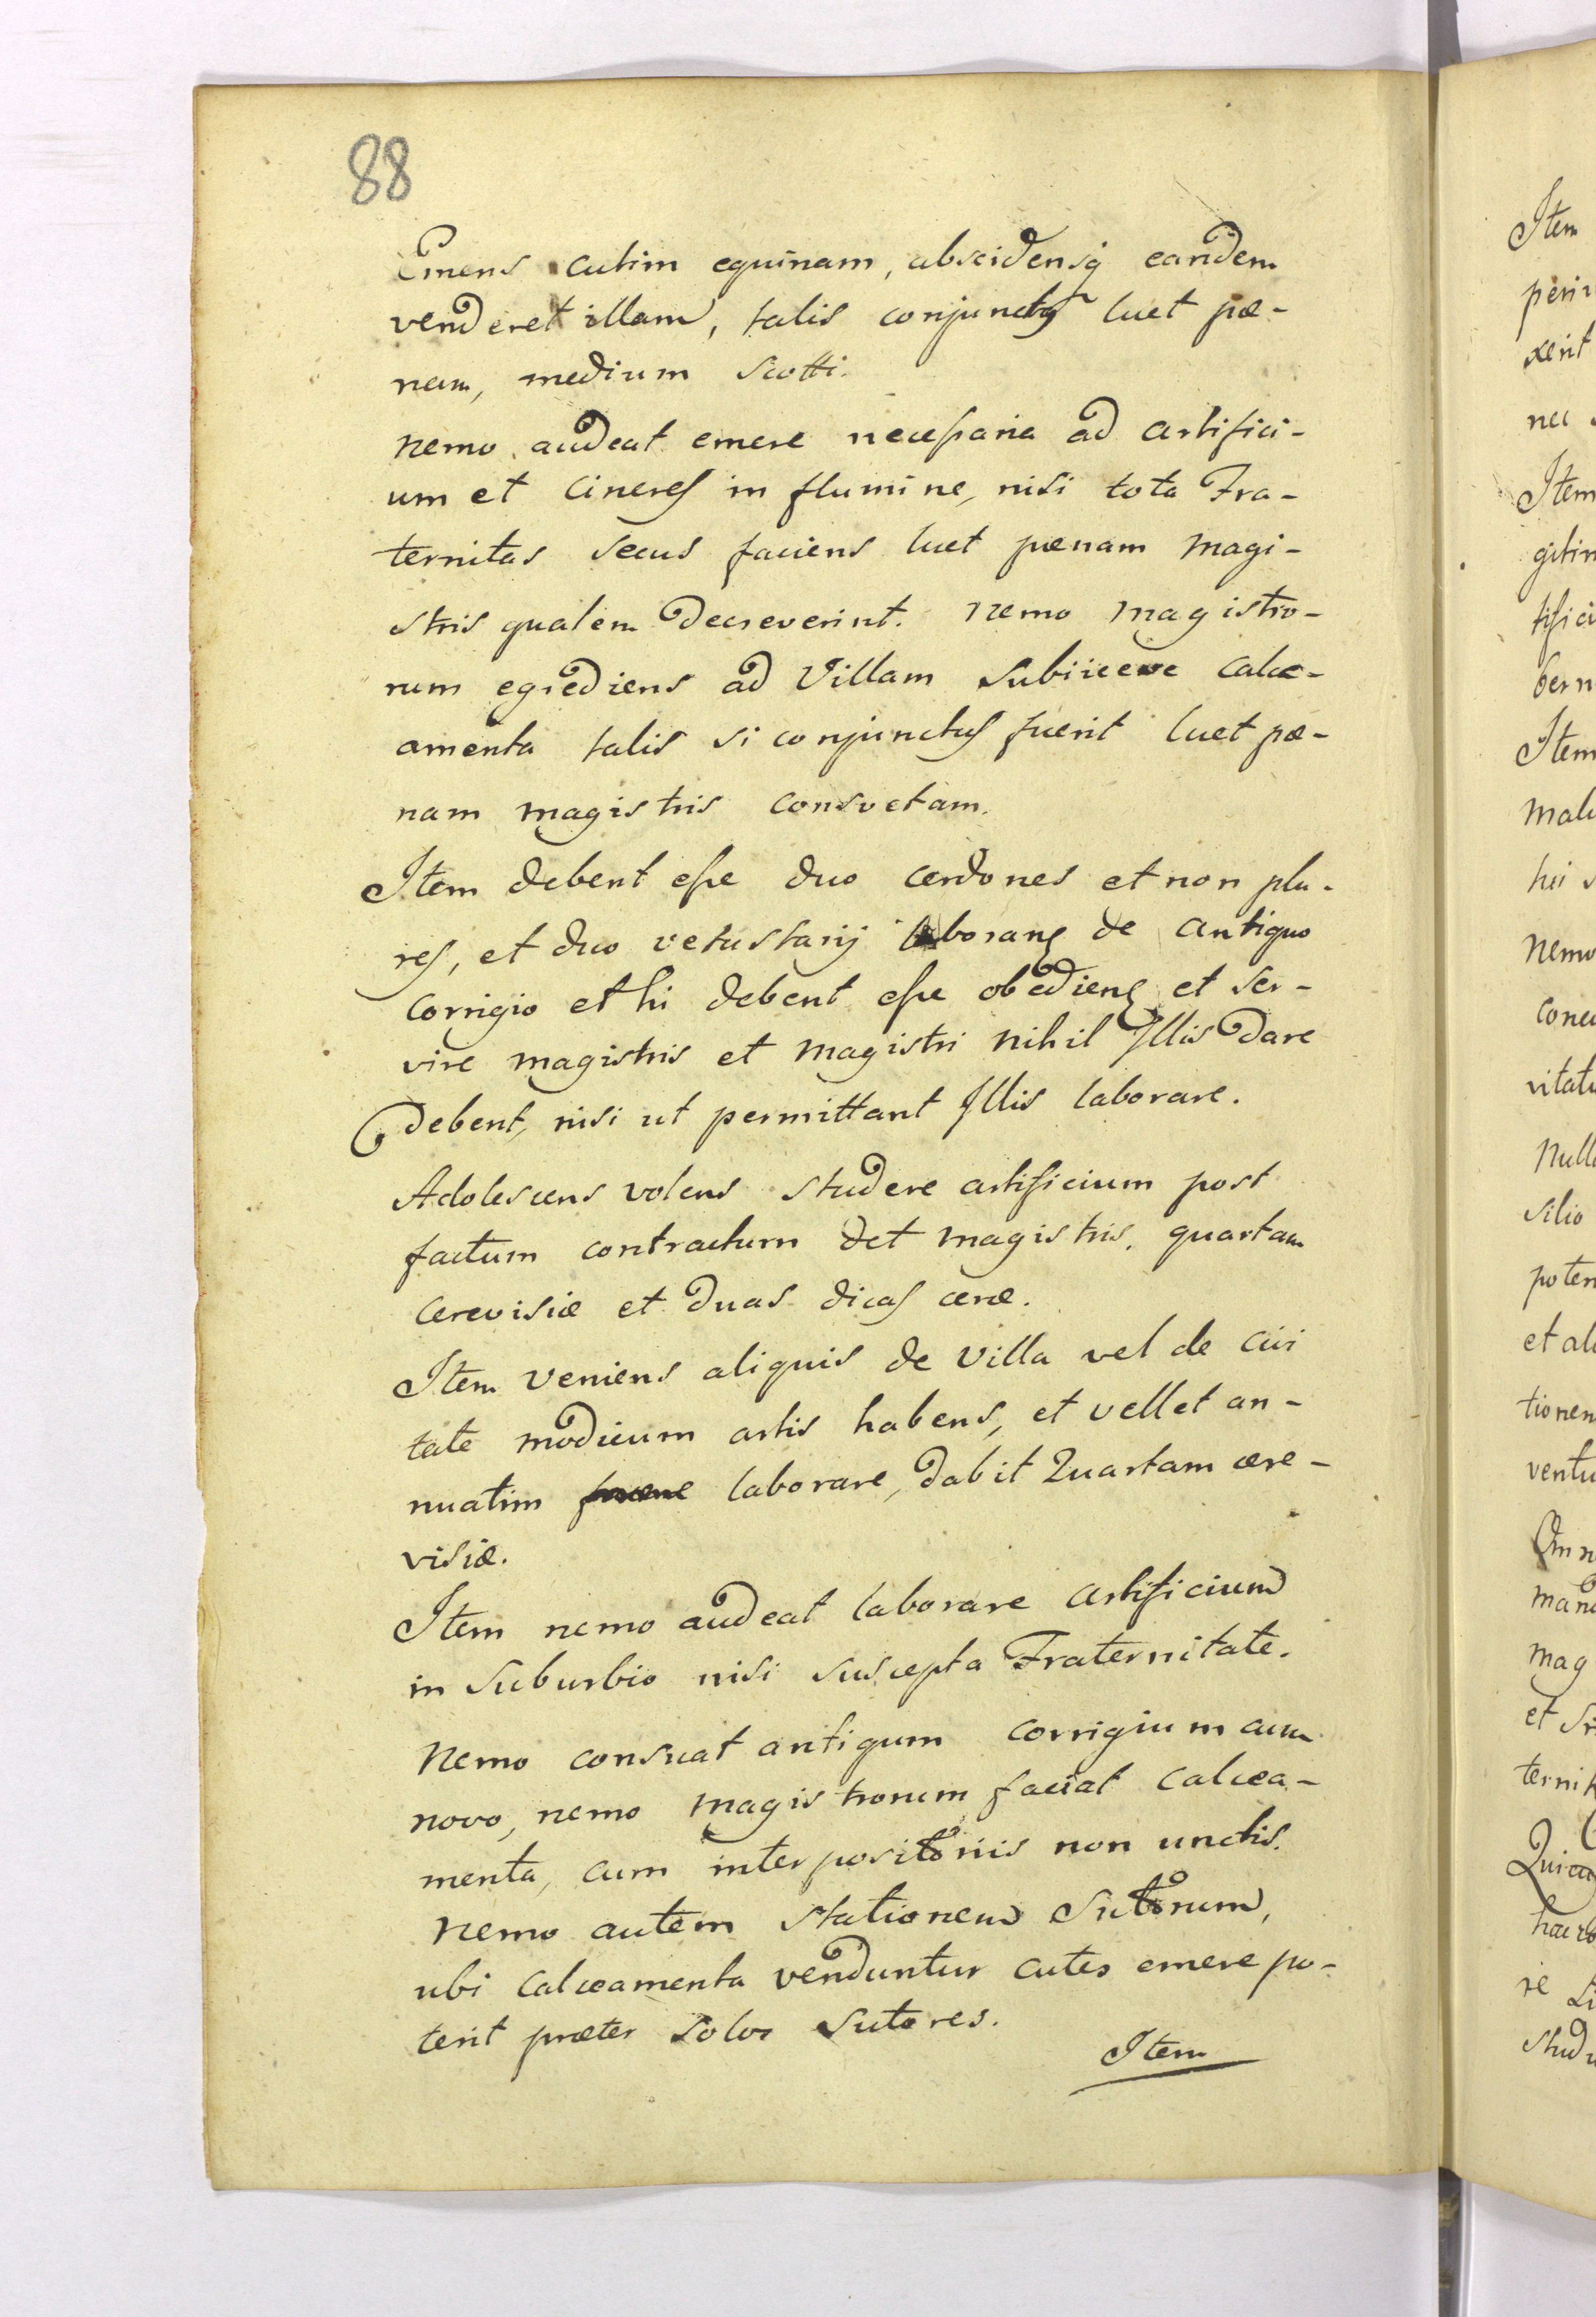 88
Emens cutim equinam, abscidensq eandem
venderet illam, talis conjunctus luet pœ-
nam, medium scotti.
nemo audeat emere necessaria ad artifici-
um et cineres in flumine, nisi tota Fra-
ternitas secus faciens luet pœnam magi-
stris qualem decreverint. nemo magistro-
rum egrediens ad Villam subiicere calce-
amenta talis si conjunctus fuerit luet pœ-
nam magistris consvetam.
Item debent esse duo cerdones et non plu-
res, et duo vetustarij laborantes de antiquo
corrigio et hi debent esse obedientes et ser-
vire magistris et magistri nihil Illis dare
debent, nisi ut permittant Illis laborare.
Adolescens volens studere artificium post
factum contractum det magistris, quartam
cerevisiæ et duas dicas ceræ.
Item veniens aliquis de villa vel de civi
tate modicum artis habens, et vellet an-
nuatim laborare, dabit Quartam cere-
visiæ.
Item nemo audeat laborare artificium
in suburbio nisi suscepta Fraternitate.
Nemo consuat antiqum corrigium cum
novo, nemo magistrorum faciat calcea-
menta, cum interpositoriis non unctis.
Nemo autem stationem Sutorum,
ubi calceamenta venduntur cutes emere po-
terit præter solos Sutores.
Item
Item
nec
Item
Item
Nemo
silio
et